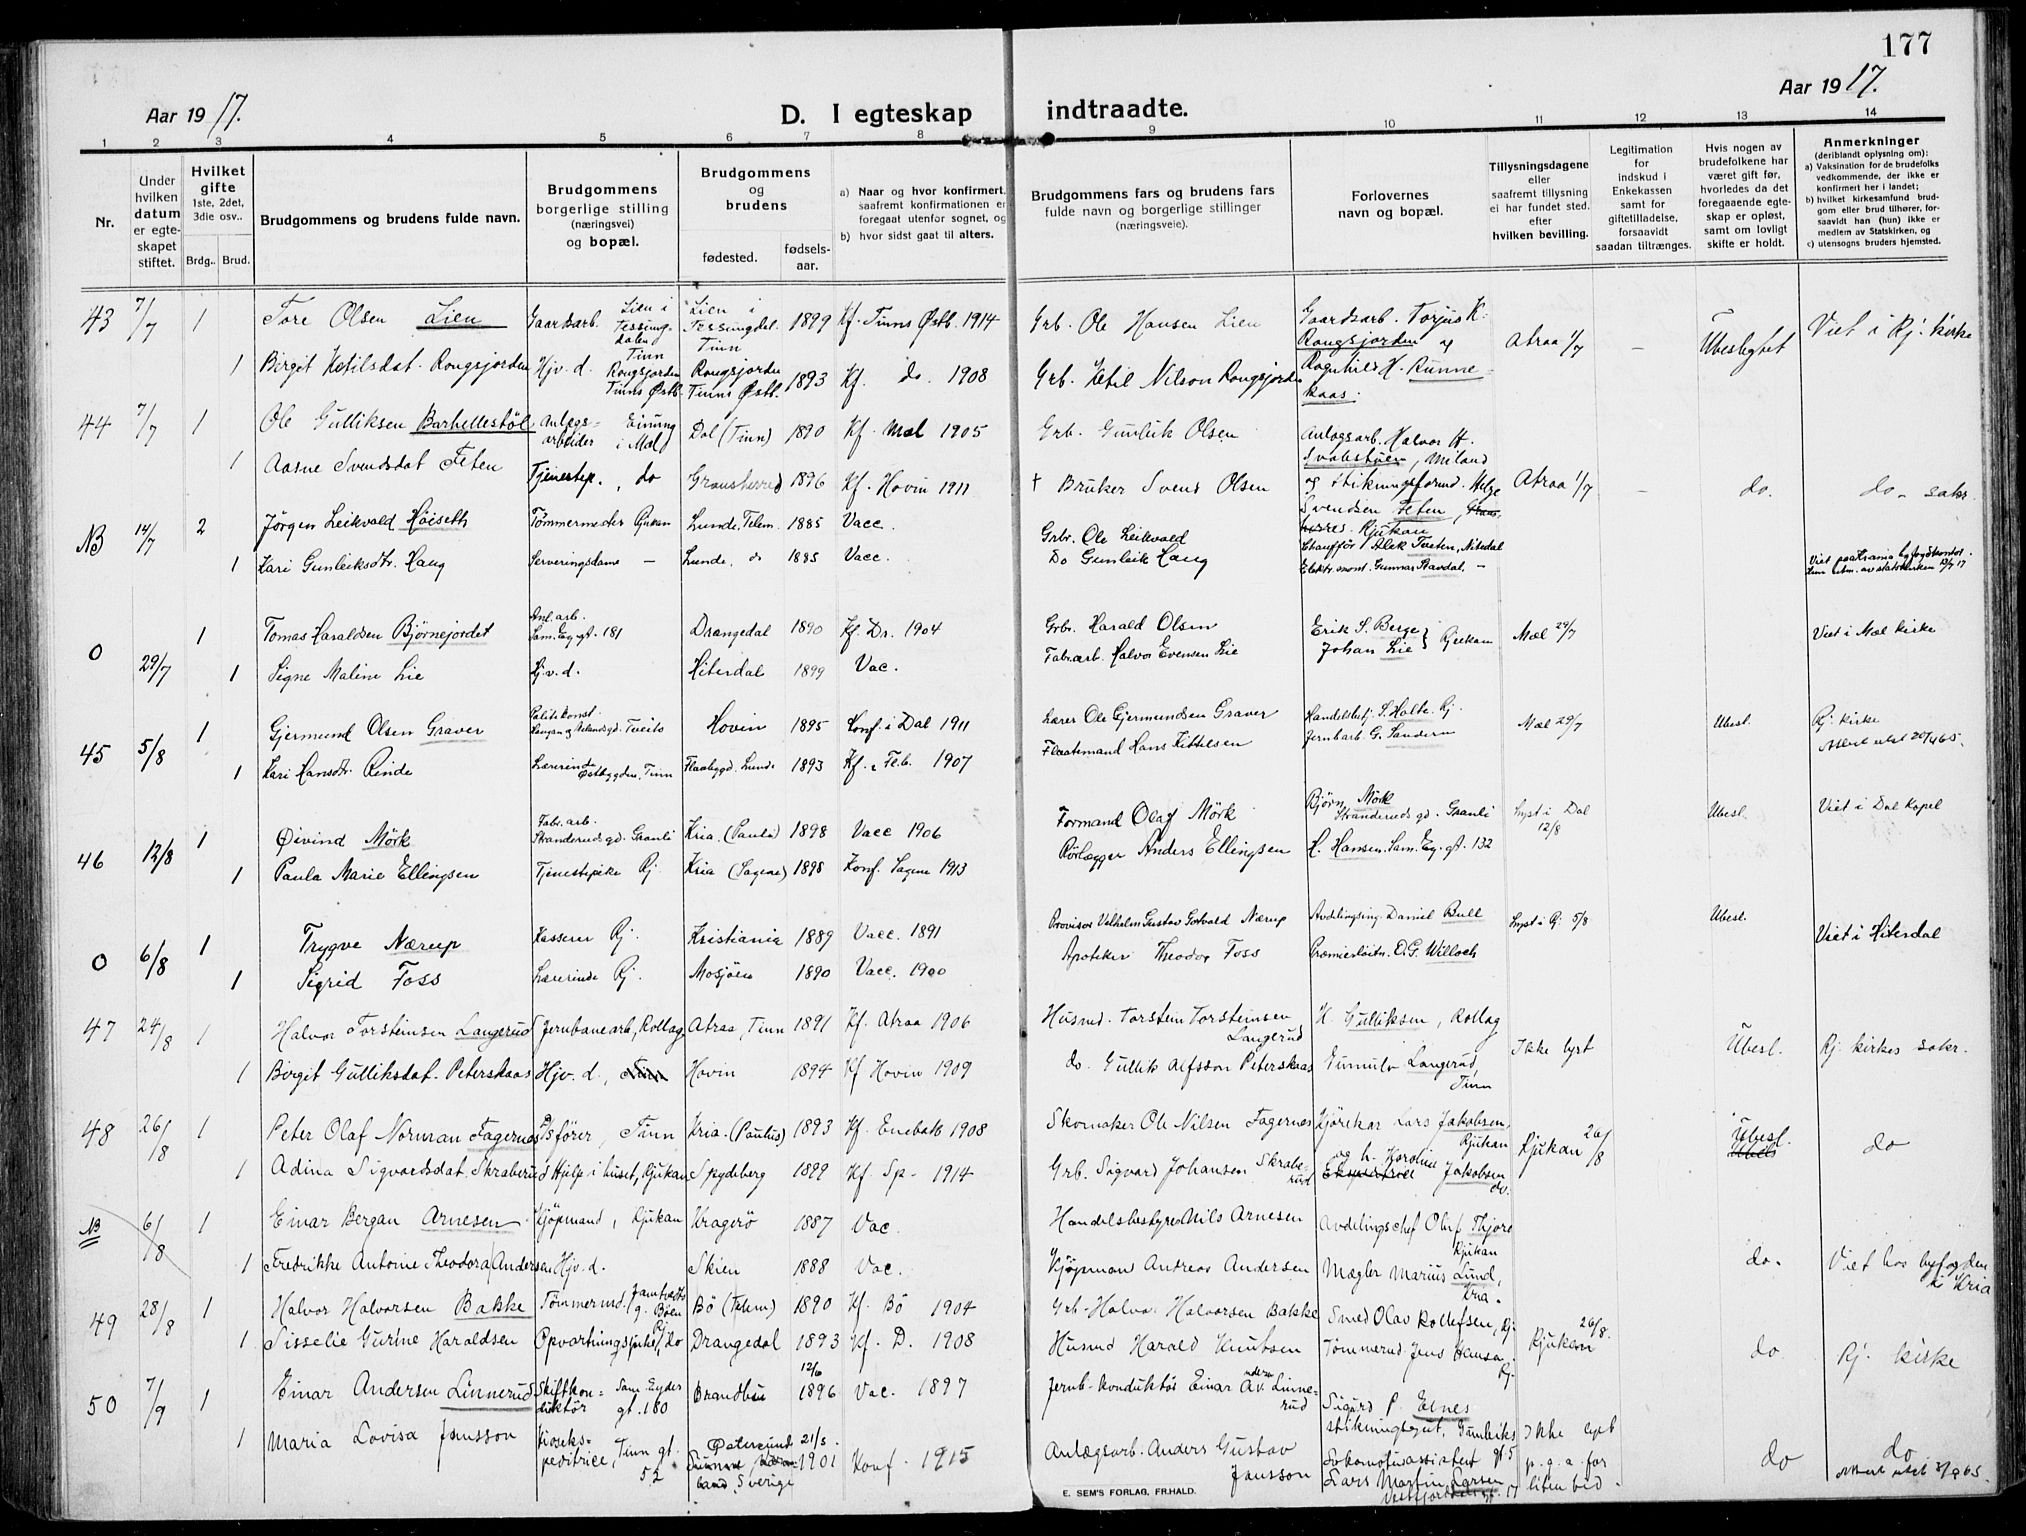 177
Aar 1917.
D. I egteskap indtraadte.
Aar 1917.
1 2 3 4 5 6 7 8 9 10 11 12 13 14
Nr.
Under hvilken datum er egteskapet stiftet.
Hvilket gifte 1ste, 2det, 3die osv..
Brdg.. Brud.
Brudgommens og brudens fulde navn.
Brudgommens borgerlige stilling (næringsvei) og bopæl.
Brudgommens og brudens
fødested. fødselsaar.
a) Naar og hvor konfirmert, saafremt konfirmationen er foregaat utenfor sognet, og
b) hvor sidst gaat til alters.
Brudgommens fars og brudens fars fulde navn og borgerlige stillinger (næringsveie).
Forlovernes navn og bopæl.
Tillysningsdagene eller saafremt tillysning ei har fundet sted, efter hvilken bevilling.
Legitimation for indskud i Enkekassen samt for giftetilladelse, forsaavidt saadan tiltrænges.
Hvis nogen av brudefolkene har været gift før, hvorledes da det foregaaende egteskap er opløst, samt om lovligt skifte er holdt.
Anmerkninger (deriblandt oplysning om):
a) Vaksination for de brudefolks vedkommende, der ikke er konfirmert her i landet;
b) hvilket kirkesamfund brudgom eller brud tilhører, forsaavidt han (hun) ikke er medlem av Statskirken, og
c) utensogns bruders hjemsted.
43 7/7 1 Tore Olsen Lien Gaardsarb. Lien i Tessungdalen Tinn Lien i Tessungdal. Tinn 1899 Kf. Tinns Østb. 1914 Grb. Ole Hansen Lien Gaardsarb. Torjus K. Rongsjorden og Atraa 1/7 – Ubeslegtet Viet i Rj. kirke
1 Birgit Ketilsdat. Rongsjorden Hjv. d. Rongsjorden Tinns Østb. Rongsjorden Tinns Østb. 1893 Kf. do. 1908 Grb. Ketil Nilson Rongsjorden Ragnhild H. Runnekaas.
44 7/7 1 Ole Gulliksen Barhellestøl Anlægsarbeider Einung i Mæl Dal (Tinn) 1890 Kf. Mæl 1905 Grb. Gunleik Olsen Anlægsarb. Halvor H. Svalestuen, Miland
1 Aasne Svendsdat Feten Tjenestep., do Gransherred 1896 Kf. Hovin 1911 † Bruker Svend Olsen og Stikningsformd. Helge Svendsen Feten, Rjukan Atraa 1/7 – do. do. sakr.
NB 14/7 2 Jørgen Leikvold Høiseth Tømmermester Rjukan Lunde, Telem. 1885 Vacc. Grbr. Ole Leikvold Chauffør Alek Tveten, Nitedal
1 Kari Gunleiksdtr. Haug Serveringsdame – Lunde, do 1885 Vacc. Do Gunleik Haug Elektr. mont. Gunnar Stavdal. – Viet paa Krania byfogdkontor.
0 29/7 1 Tomas Haraldsen Bjørnejordet Anl. arb. Sam. Ey. gt. 181 Drangedal 1890 Kf. Dr. 1904 Grbr. Harald Olsen Erik S. Berge Mæl 29/7 Viet i Mæl kirke
1 Signe Maline Lie Hjv. d. Hiterdal 1899 Vac. Fabr.arb. Halvor Evensen Lie Johan Lie Rjukan
45 5/8 1 Gjermund Olsen Graver Politikonst. Hovin 1895 Konf. i Dal 1911 Lærer Ole Gjermundsen Graver Handelsbetj. S. Holte Rj. Mæl 29/7 Ubesl. Rj. kirke
1 Kari Hansdtr. Rinde Lærerinde Østbygden, Tinn Flaabygd. Lunde 1893 Kf. i Flb. 1907 Fløtemand Hans Kittelsen Jernbarb. G. Sandern
46 12/8 1 Øivind Mörk Fabr. arb. Stranderuds gd. Granli Kria. (Pauls) 1898 Vacc 1906 Formand Olaf Mörk Bjørn Mörk Stranderuds gd. Granli Lyst i Dal 12/8 Ubesl. Viet i Dal kapel
1 Paula Marie Ellingsen Tjenestepike Rj. Kria (Sagene) 1898 Konf. Sagene 1913 Rörlægger Anders Ellingsen H. Hansen. Sam. Ey. gt. 132
0 6/8 1 Trygve Nærup Kasserer Rj. Kristiania 1889 Vacc. 1891 Provisor Vilhelm Gustav Gotvald Nærup Avdelingsing. Daniel Bull Lyst i Rj. 5/8 Ubesl. Viet i Hiterdal
1 Sigrid Foss Lærerinde Rj. Mosjøen 1890 Vacc. 1900 Apoteker Theodor Foss Premierløitn. O. G. Willoch
47 24/8 1 Halvor Torsteinsen Langerud Jernbanearb, Rollag Atraa, Tinn 1891 Kf. Atraa 1906 Husmd. Torstein Torsteinsen Langerud H. Gulliksen, Rollag Ikke lyst Ubesl. Rj. kirkes sakr.
1 Birgit Gulliksdat. Peterskaas Hjv. d., Tinn Hovin 1894 Kf Hovin 1909 do. Gullik Alfsson Peterskaas Gunnulv Langerud, Tinn
48 26/8 1 Peter Olaf Norman Fagernes Tinn Kria. (Paulus) 1893 Kf. Enebak 1908 Skomaker Ole Nilsen Fagernes Kjørekar Lars Jakobsen, Rjukan Rjukan 26/8 Ubesl. do
1 Adina Sigvardsdat. Skraberud Hjælp i huset, Rjukan Spydeberg 1899 Kf. Sp. 1914 Grb. Sigvard Johansen Skraberud og h. Karoline Jakobsen do.
NB 6/8 1 Einar Bergan Arnesen Kjøpmand, Rjukan Kragerö 1887 Vac. Handelsbestyrer Nils Arnesen Avdelingschef Oluf Thjore Rjukan
1 Fredrikke Antoine Theodora Andersen Hjv. d. Skien 1888 Vac. Kjøpman Andreas Andersen Mægler Marius Lund, Kria. do. Viet hos byfogden i Kria
49 28/8 1 Halvor Halvorsen Bakke Tømmermd. Bö (Telem) 1890 Kf. Bö 1904 Grb. Halvor Halvorsen Bakke Smed Olav Rollefsen, Rj. Rjukan 26/8.
1 Sisselie Gurine Haraldsen Opvartningspike, do Drangedal 1893 Kf. D. 1908 Husmd Harald Knutsen Tømmermd Jens Hansen, Rj. do Rj. kirke
50 7/9 1 Einar Andersen Linnerud Skiftkonduktör Sam. Eydes gt. 180 Brandbu 12/6 1896 Vac. 1897 Jernb. konduktör Einar Av. Linnerud Sigurd P. Elnes
1 Maria Lovisa Jansson Kiosekspeditrice, Tinn gt. 52 Sverige 21/5. 1901 Konf. 1915 Anlægsarb. Anders Gustav Jansson Lokomotivassistent Lars Martin Larsen Ikke lyst p. g. a. for liten tid. do do
E. SEM'S FORLAG, FR.HALD.